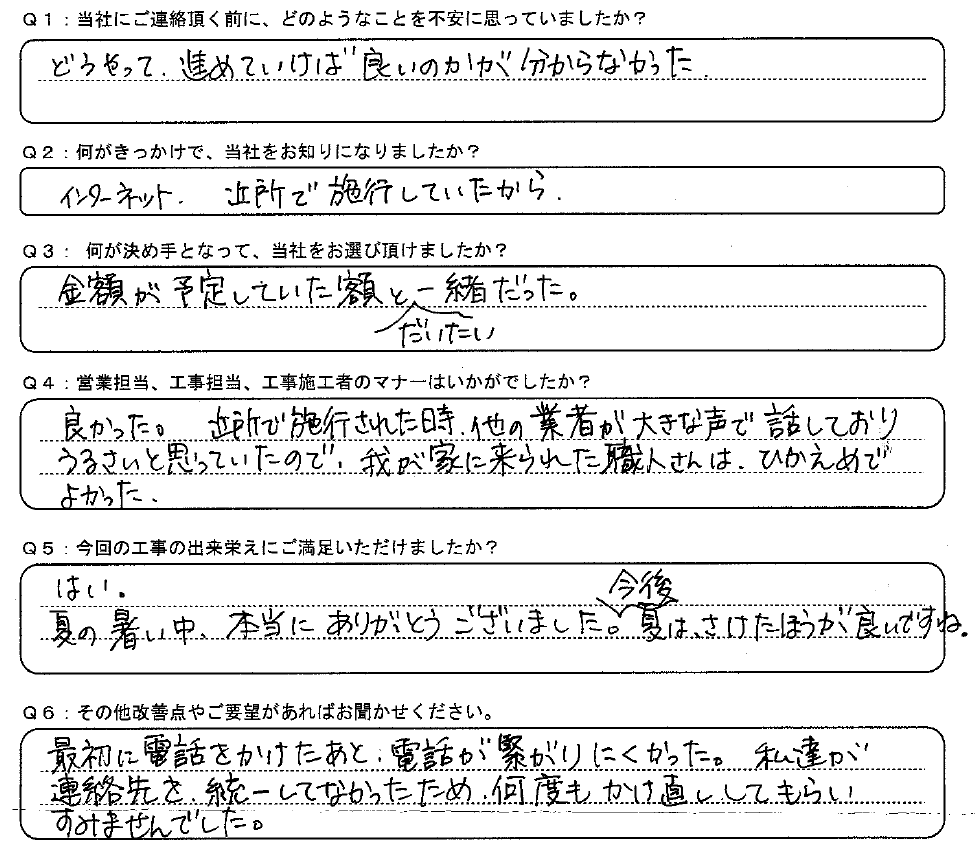 Q1:当社にご連絡頂く前に、どのようなことを不安に思っていましたか?
どうやって、進めていけば良いのかが分からなかった.
Q2:何がきっかけで、当社をお知りになりましたか?
インターネット. 近所で施行していたから.
Q3: 何が決め手となって、当社をお選び頂けましたか?
金額が予定していた額と一緒だった。
だいたい
Q4:営業担当、工事担当、工事施工者のマナーはいかがでしたか?
良かった。 近所で施行された時、他の業者が大きな声で話しており
うるさいと思っていたので、我が家に来られた職人さんは、ひかえめで
よかった.
Q5:今回の工事の出来栄えにご満足いただけましたか?
はい.
今後
夏の暑い中、本当にありがとうございました。夏は、さけたほうが良いですね.
Q6:その他改善点やご要望があればお聞かせください。
最初に電話をかけたあと、電話が繋がりにくかった。 私達が
連絡先を、統一してなかったため、何度もかけ直ししてもらい
すみませんでした。